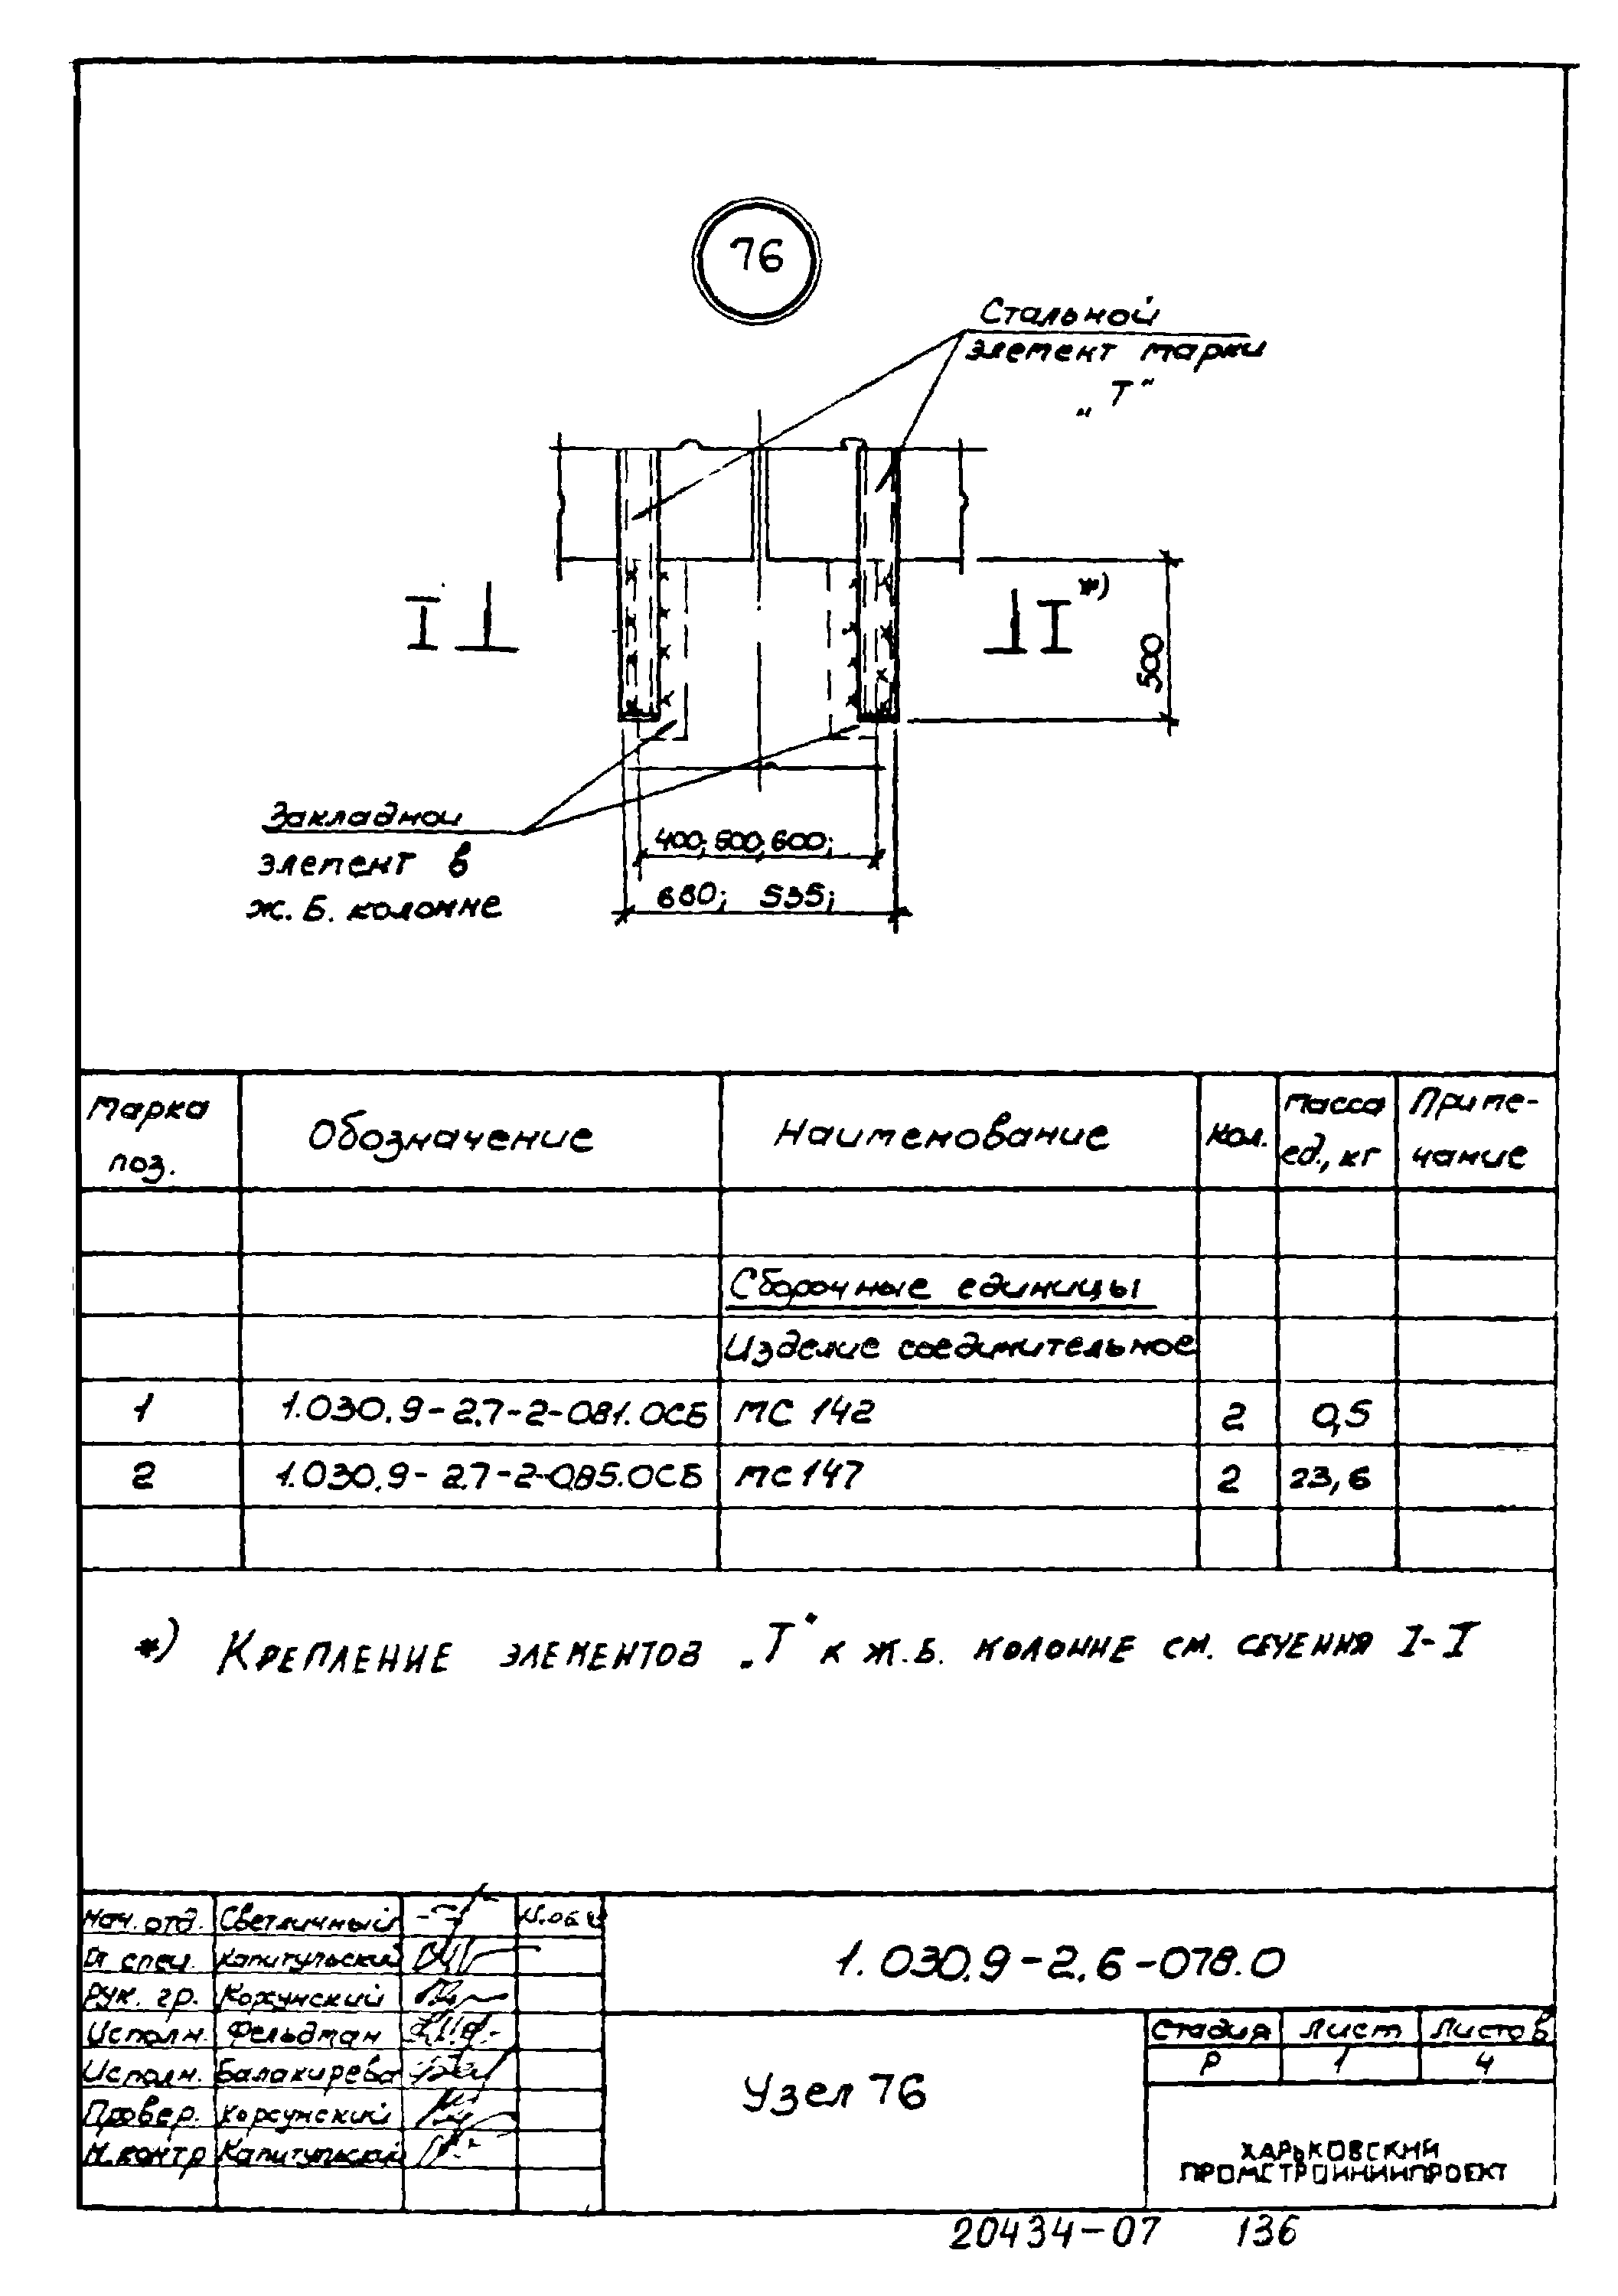 76
Стальной
элемент марки
„Т“
I
I *)
500
Закладной
элемент в
ж.б. колонне
400; 500; 600;
680; 535;
Марка
поз.
Обозначение
Наименование
Кол.
Масса
ед., кг
Приме-
чание
Сборочные единицы
Изделие соединительное
1 1.030.9-2.7-2-081.0СБ МС 142 2 0,5
2 1.030.9-2.7-2-085.0СБ МС 147 2 23,6
*) Крепление элементов „Т“ к ж.б. колонне см. сечения I-I
Нач. отд. Светличный
Гл. спец. Капитульский
Рук. гр. Корсунский
Исполн. Фельдман
Исполн. Балакирева
Провер. Корсунский
Н. контр Капитульский
1.030.9-2.6-078.0
Узел 76
Стадия Лист Листов
Р 1 4
ХАРЬКОВСКИЙ
ПРОМСТРОЙНИИПРОЕКТ
20434-07 136